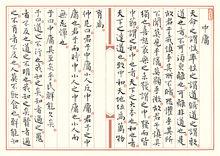 中庸
天命之謂性率性之謂道修道之謂
教道也者不可須臾離也可離非道
也是故君子戒慎乎其所不
睹恐懼乎其所不聞莫見乎隱莫顯乎微故君子慎其
獨也喜怒哀樂之未發謂之中發而皆中
節謂之和中也者天下之大本也和也者
天下之達道也致中和天地位焉萬物
育焉
仲尼曰君子中庸小人反中庸君子之中
庸也君子而時中小人之中庸也小人而
無忌憚也
子曰中庸其至矣乎民鮮能久矣
子曰道之不行也我知之矣知者過之愚
者不及也道之不明也我知之矣賢者過之不肖
者不及也人莫不飲食也鮮能知